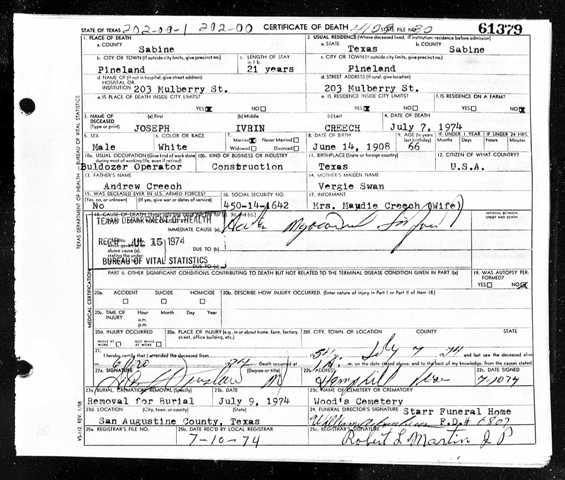 STATE OF TEXAS 202-09-1 202-00 CERTIFICATE OF DEATH STATE FILE NO. 61379
1. PLACE OF DEATH 2. USUAL RESIDENCE (Where deceased lived. If institution: residence before admission)
a. COUNTY a. STATE b. COUNTY
Sabine Texas Sabine
b. CITY OR TOWN (If outside city limits, give precinct no.) c. LENGTH OF STAY c. CITY OR TOWN (If outside city limits, give precinct no.)
Pineland 21 years Pineland
d. NAME OF (If not in hospital, give street address) d. STREET ADDRESS
HOSPITAL OR
INSTITUTION 203 Mulberry St. 203 Mulberry St.
e. IS PLACE OF DEATH INSIDE CITY LIMITS? e. IS RESIDENCE INSIDE CITY LIMITS? f. IS RESIDENCE ON A FARM?
YES NO YES NO YES NO
3. NAME OF DECEASED (Type or print) (a) First (b) Middle (c) Last 4. DATE OF DEATH
JOSEPH IVRIN CREECH July 7, 1974
5. SEX 6. COLOR OR RACE 7. Married Never Married Widowed Divorced 8. DATE OF BIRTH 9. AGE
Male White June 14, 1908 66
10a. USUAL OCCUPATION 10b. KIND OF BUSINESS OR INDUSTRY 11. BIRTHPLACE 12. CITIZEN OF WHAT COUNTRY?
Buldozer Operator Construction Texas U.S.A.
13. FATHER'S NAME 14. MOTHER'S MAIDEN NAME
Andrew Creech Vergie Swan
15. WAS DECEASED EVER IN U.S. ARMED FORCES? 16. SOCIAL SECURITY NO. 17. INFORMANT
No 450-14-1642 Mrs. Maudie Creech (Wife)
TEXAS DEPARTMENT OF HEALTH
REC'D JUL 15 1974
BUREAU OF VITAL STATISTICS
IMMEDIATE CAUSE (a)
DUE TO (b)
DUE TO (c)
PART II. OTHER SIGNIFICANT CONDITIONS CONTRIBUTING TO DEATH BUT NOT RELATED TO THE TERMINAL DISEASE CONDITION GIVEN IN PART I(a) 19. WAS AUTOPSY PERFORMED?
YES NO
20a. ACCIDENT SUICIDE HOMICIDE 20b. DESCRIBE HOW INJURY OCCURRED. (Enter nature of injury in Part I or Part II of item 18)
20c. TIME OF INJURY Hour Month Day Year
a.m.
p.m.
20d. INJURY OCCURRED 20e. PLACE OF INJURY (e.g., in or about home, farm, factory, street, office building, etc.) 20f. CITY, TOWN, OR LOCATION COUNTY STATE
21. I hereby certify that I attended the deceased from
July 7 74
22a. SIGNATURE (Degree or title) 22b. ADDRESS 22c. DATE SIGNED
Hemphill
23a. BURIAL, CREMATION, REMOVAL (Specify) 23b. DATE 23c. NAME OF CEMETERY OR CREMATORY
Removal for Burial July 9, 1974 Wood's Cemetery
23d. LOCATION (City, town, or county) (State) 24. FUNERAL DIRECTOR'S SIGNATURE
San Augustine County, Texas Starr Funeral Home
F.D.# 6807
25a. REGISTRAR'S FILE NO. 25b. DATE REC'D BY LOCAL REGISTRAR 25c. REGISTRAR'S SIGNATURE
7-10-74 Robert L Martin J P
TEXAS DEPARTMENT OF HEALTH BUREAU OF VITAL STATISTICS
MEDICAL CERTIFICATION
VS-112 REV. 1/58